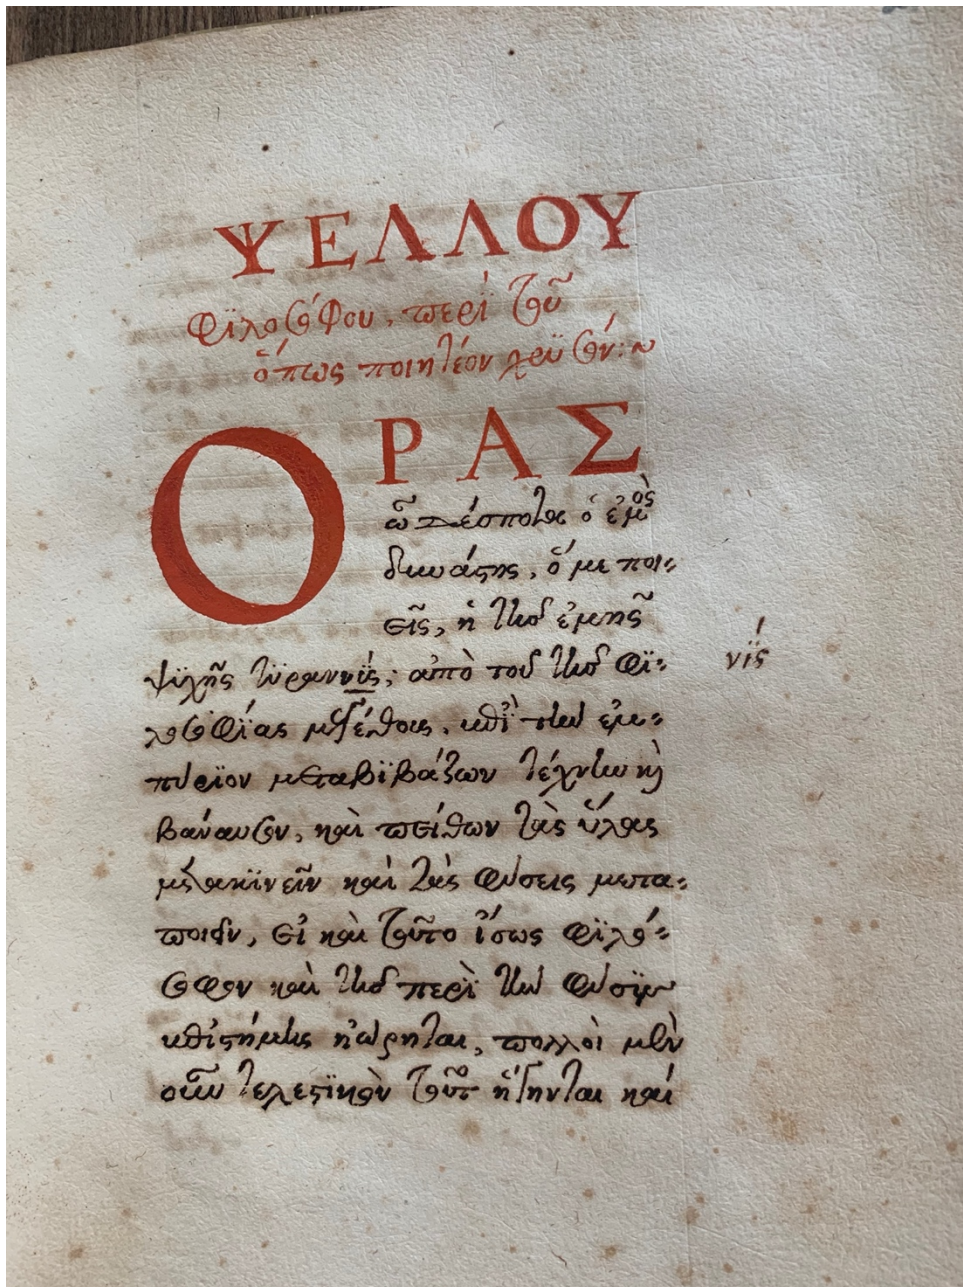 ΨΕΛΛΟΥ
φϊλοσόφου, περὶ τοῦ
ὅπως ποιητέον χρϋσόν:~
ΟΡΑΣ
ὦ δέσποτα ὁ ἐμὸς
δυνάστης, ὅ με ποι-
εῖς, ἡ τῆς ἐμῆς
ψϋχῆς τϋραννΐς; ἀπὸ τοῦ τῆς φϊ-
νΐς
λοσοφΐας μεγέθους, ἐπὶ τὴν ἐμ-
πύρϊον μεταβϊβάζων τέχνην κὴ
βάναυσον, καὶ πείθων τὰς ὕλας
μετακϊνεῖν καὶ τὰς φύσεις μετα-
ποιεῖν, εἰ καὶ τοῦτο ἴσως φϊλό-
σοφον καὶ τῆς περὶ τὴν φύσϊν
ἐπιστήμης ἠώρηται, πολλοὶ μὲν
οὖν τελεστϊκὸν τοῦτο ἥγηνται καὶ